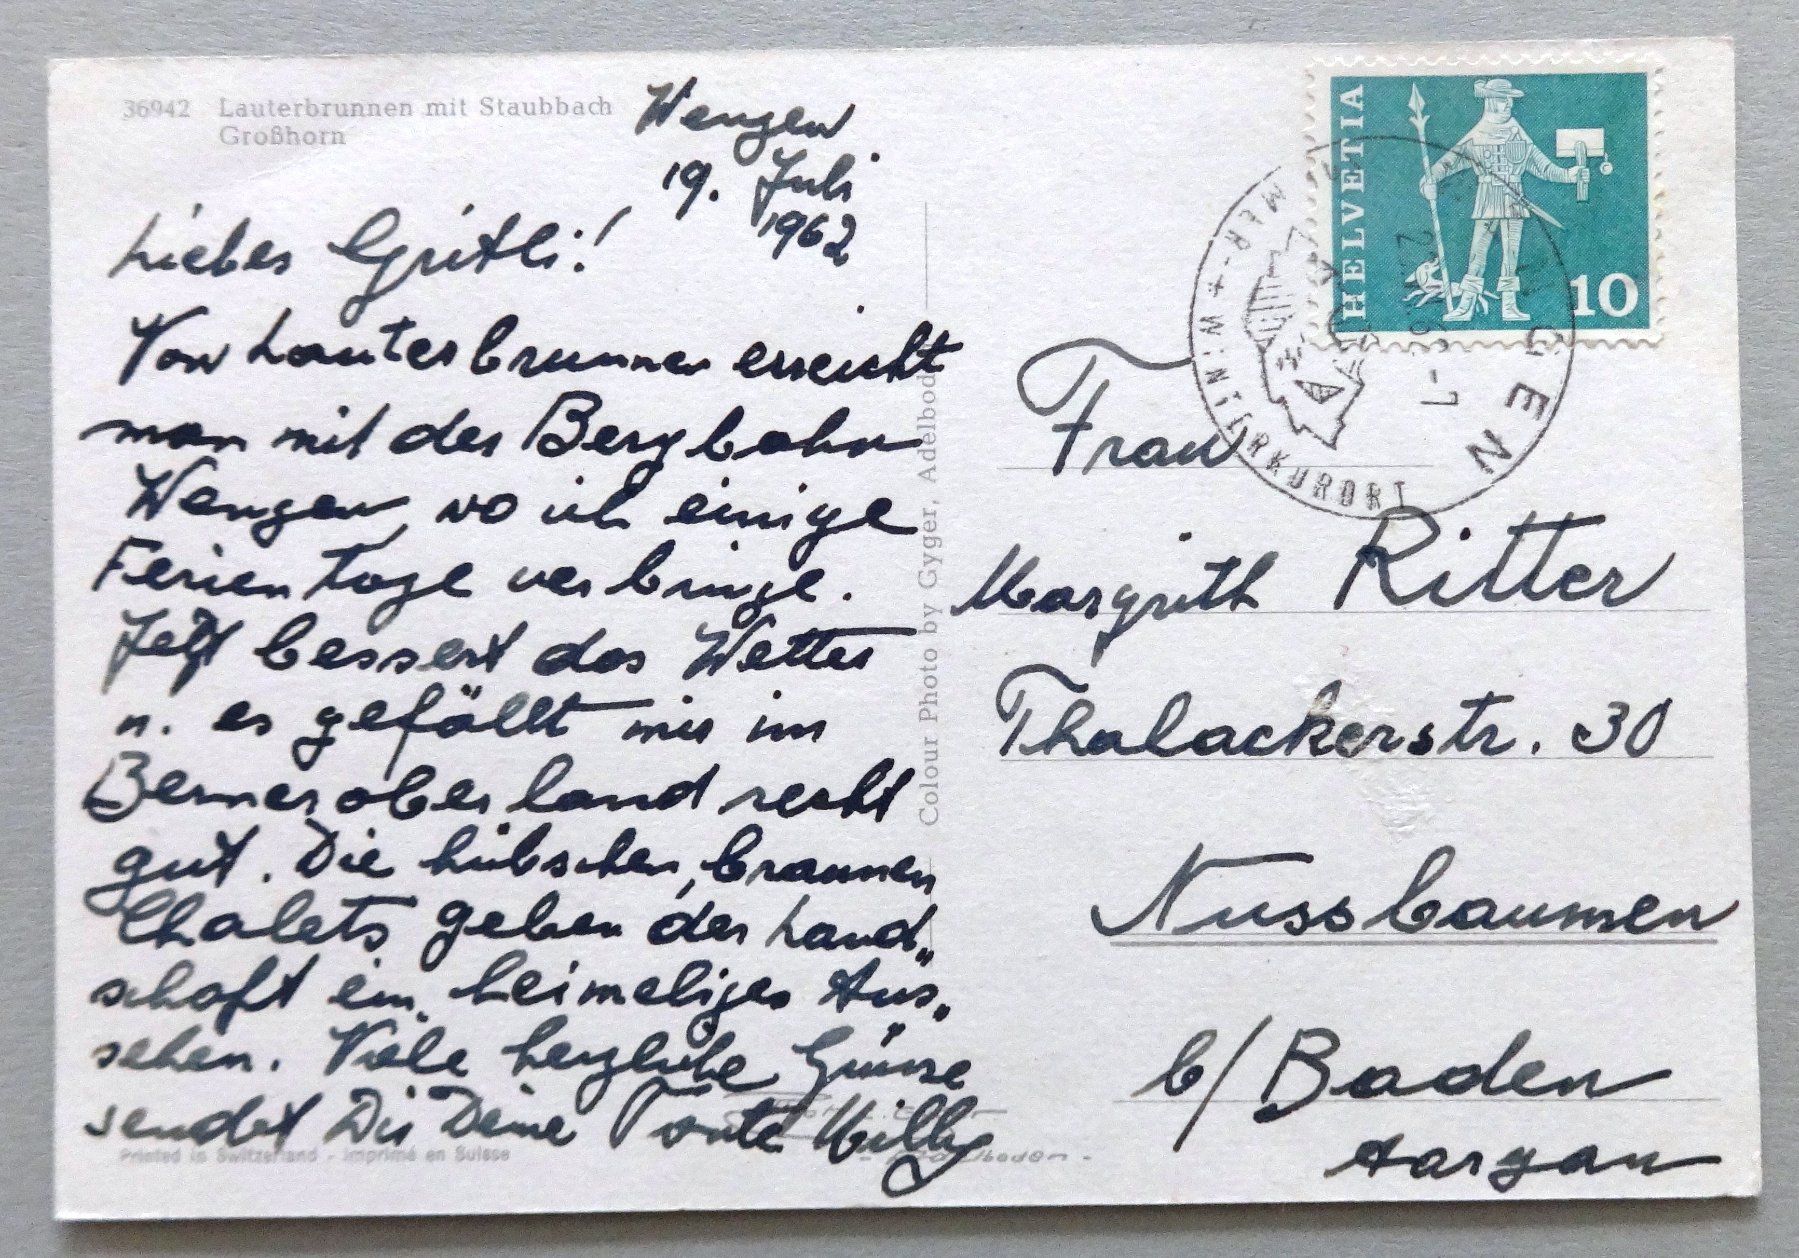 36942 Lauterbrunnen mit Staubbach
Großhorn
Wengen
19. Juli
1962
Liebes Gritli!
Von Lauterbrunnen erreicht
man mit der Bergbahn
Wengen, wo ich einige
Ferientage verbringe.
Jetzt bessert das Wetter
u. es gefällt mir im
Berneroberland recht
gut. Die hübschen, braunen
Chalets geben der Land„
schaft ein heimeliges Aus„
sehen. Viele herzliche Grüsse
sendet Dir Deine Tante Milly
Printed in Switzerland - Imprimé en Suisse
Colour Photo by Gyger, Adelboden
HELVETIA
10
WENGEN
WINTERKURORT
Frau
Margrith Ritter
Thalackerstr. 30
Nussbaumen
b/Baden
Aargau